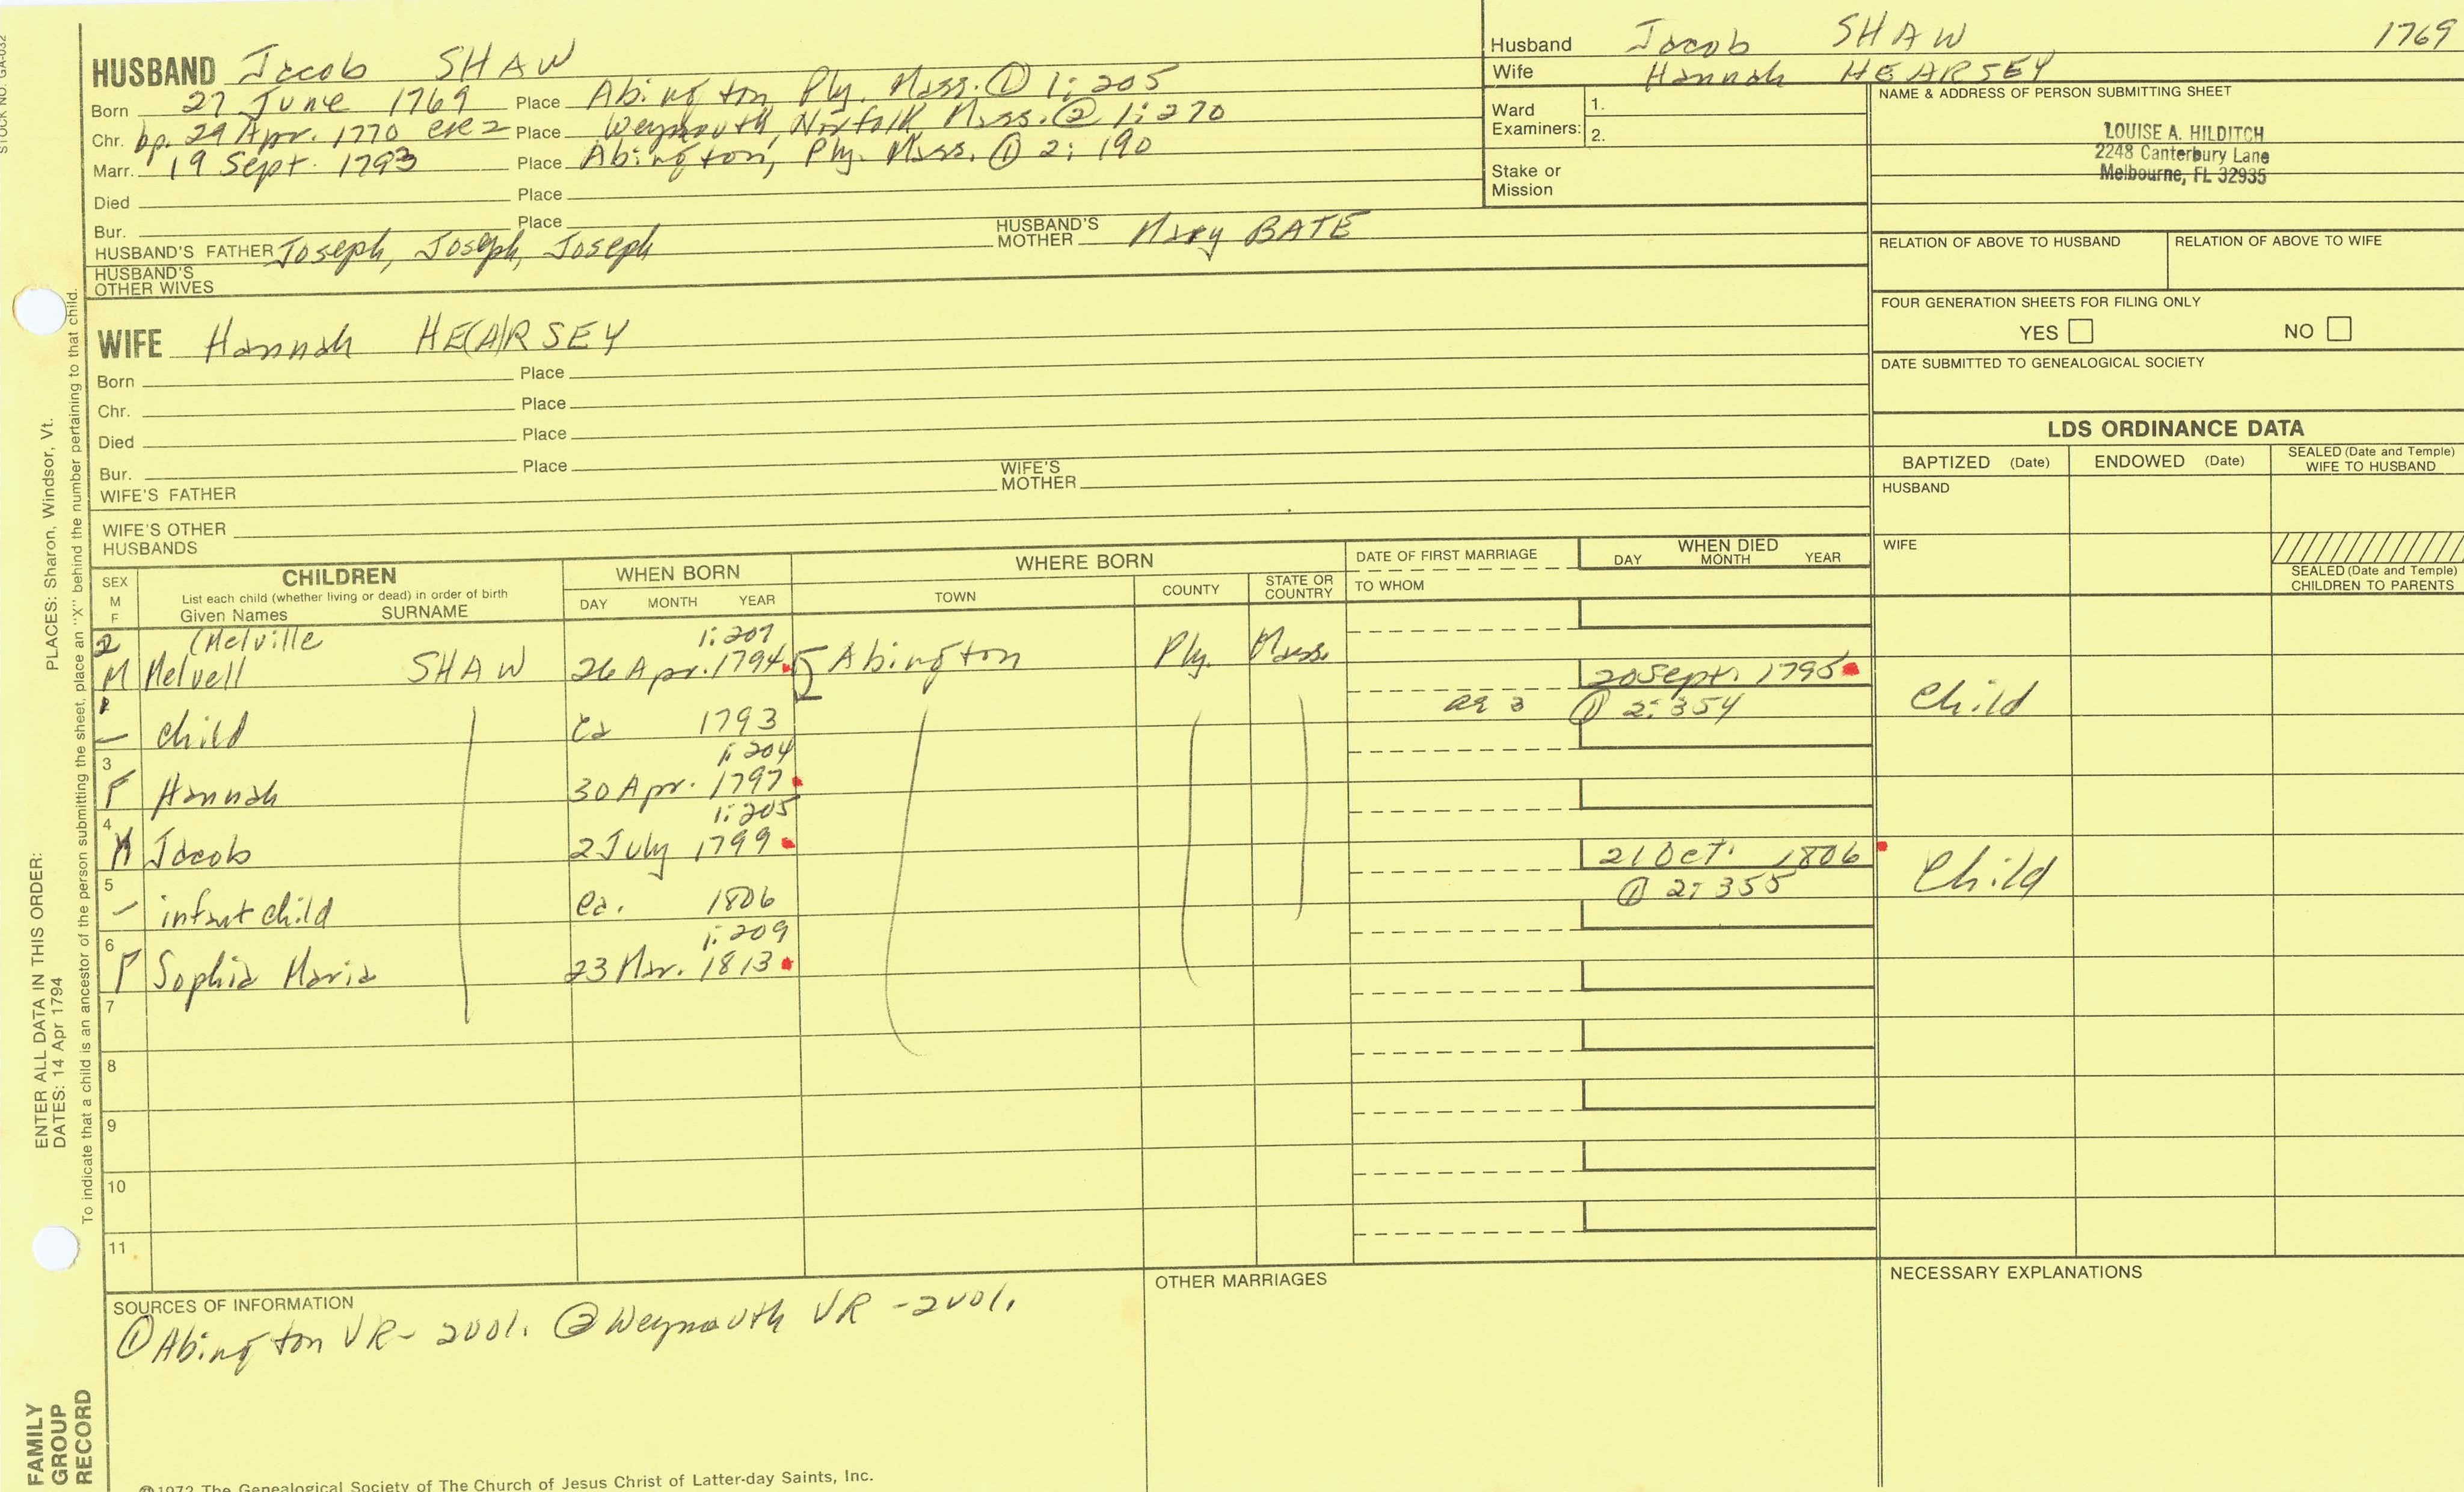 STOCK NO. GA-032
HUSBAND Jacob SHAW
Born 27 June 1769 Place Abington Ply. Mass. ① 1:205
Chr. bp. 29 Apr. 1770 Place Weymouth, Norfolk Mass. ② 1:270
Marr. 19 Sept. 1793 Place Abington, Ply. Mass. ① 2:190
Died Place
Bur. Place
HUSBAND'S FATHER Joseph, Joseph, Joseph HUSBAND'S MOTHER Mary BATE
HUSBAND'S OTHER WIVES
Husband Jacob SHAW 1769
Wife Hannah HEARSEY
Ward Examiners: 1.
2.
Stake or Mission
NAME & ADDRESS OF PERSON SUBMITTING SHEET
LOUISE A. HILDITCH
2248 Canterbury Lane
Melbourne, FL 32935
RELATION OF ABOVE TO HUSBAND RELATION OF ABOVE TO WIFE
FOUR GENERATION SHEETS FOR FILING ONLY
YES NO
DATE SUBMITTED TO GENEALOGICAL SOCIETY
WIFE Hannah HE(A)RSEY
Born Place
Chr. Place
Died Place
Bur. Place
WIFE'S FATHER WIFE'S MOTHER
WIFE'S OTHER HUSBANDS
LDS ORDINANCE DATA
BAPTIZED (Date) ENDOWED (Date) SEALED (Date and Temple) WIFE TO HUSBAND
HUSBAND
WIFE
SEALED (Date and Temple) CHILDREN TO PARENTS
SEX M F
CHILDREN
List each child (whether living or dead) in order of birth
Given Names SURNAME
WHEN BORN
DAY MONTH YEAR
WHERE BORN
TOWN COUNTY STATE OR COUNTRY
DATE OF FIRST MARRIAGE
TO WHOM
WHEN DIED
DAY MONTH YEAR
2 (Melville 1:207
M Melvell SHAW 26 Apr. 1794 Abington Ply. Mass. 20 Sept. 1795
child ca 1793 ae 3 ① 2:354 Child
3 1:204
F Hannah 30 Apr. 1797
4 1:205
M Jacob 2 July 1799 21 Oct. 1806
5 infant child ca. 1806 ① 2:355 Child
6 1:209
F Sophia Maria 23 Mar. 1813
7
8
9
10
11
SOURCES OF INFORMATION
① Abington VR - 2 vol. ② Weymouth VR - 2 vol.
OTHER MARRIAGES
NECESSARY EXPLANATIONS
©1972 The Genealogical Society of The Church of Jesus Christ of Latter-day Saints, Inc.
FAMILY GROUP RECORD
ENTER ALL DATA IN THIS ORDER:
DATES: 14 Apr 1794
PLACES: Sharon, Windsor, Vt.
To indicate that a child is an ancestor of the person submitting the sheet, place an "X" behind the number pertaining to that child.